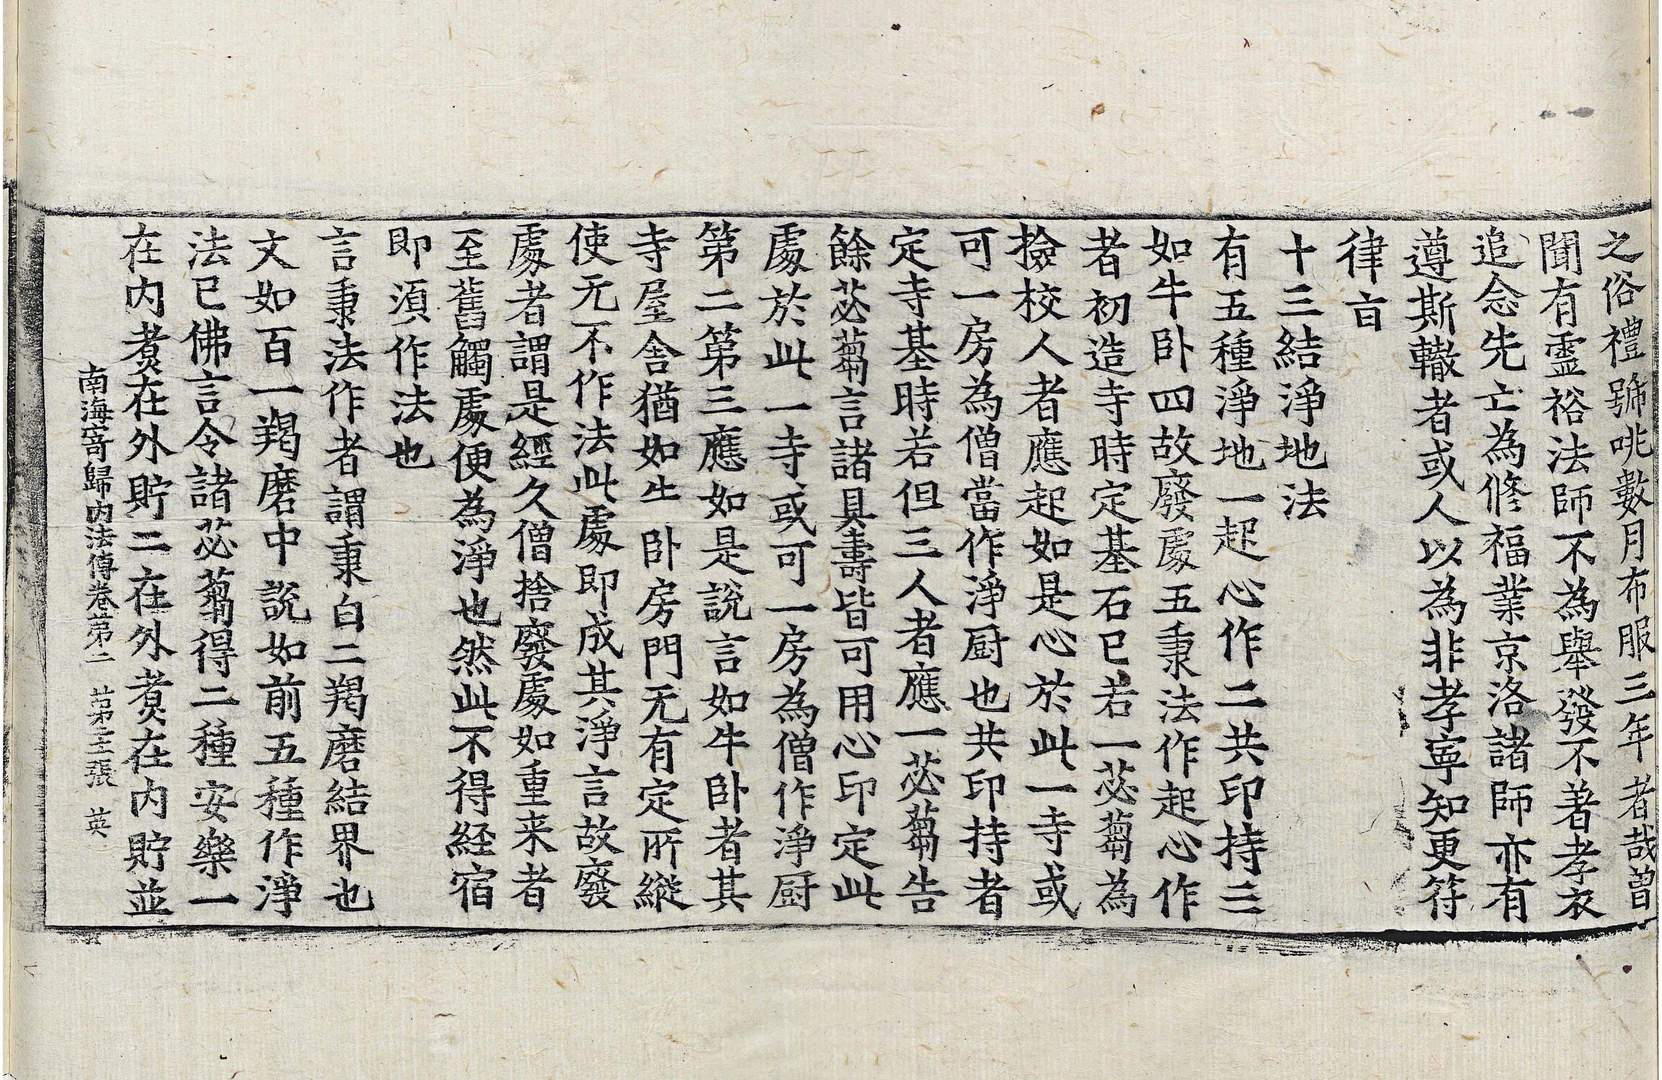 之俗禮號咷數月布服三年者哉曽
聞有靈裕法師不為舉發不著孝衣
追念先亡為修福業京洛諸師亦有
遵斯轍者或人以為非孝寧知更符
律㫖
十三結淨地法
有五種淨地一起心作二共印持三
如牛卧四故廢處五秉法作起心作
者初造寺時定基石已若一苾蒭為
撿校人者應起如是心於此一寺或
可一房為僧當作淨厨也共印持者
定寺基時若但三人者應一苾蒭告
餘苾蒭言諸具壽皆可用心印定此
處於此一寺或可一房為僧作淨厨
第二第三應如是說言如牛卧者其
寺屋舍猶如牛卧房門无有定所縱
使无不作法此處即成其淨言故廢
處者謂是經久僧捨廢處如重来者
至舊觸處便為淨也然此不得経宿
即須作法也
言秉法作者謂秉白二羯磨結界也
文如百一羯磨中說如前五種作淨
法已佛言令諸苾蒭得二種安樂一
在内煑在外貯二在外煑在内貯並
南海寄歸内法傳卷苐二 苐三張 英